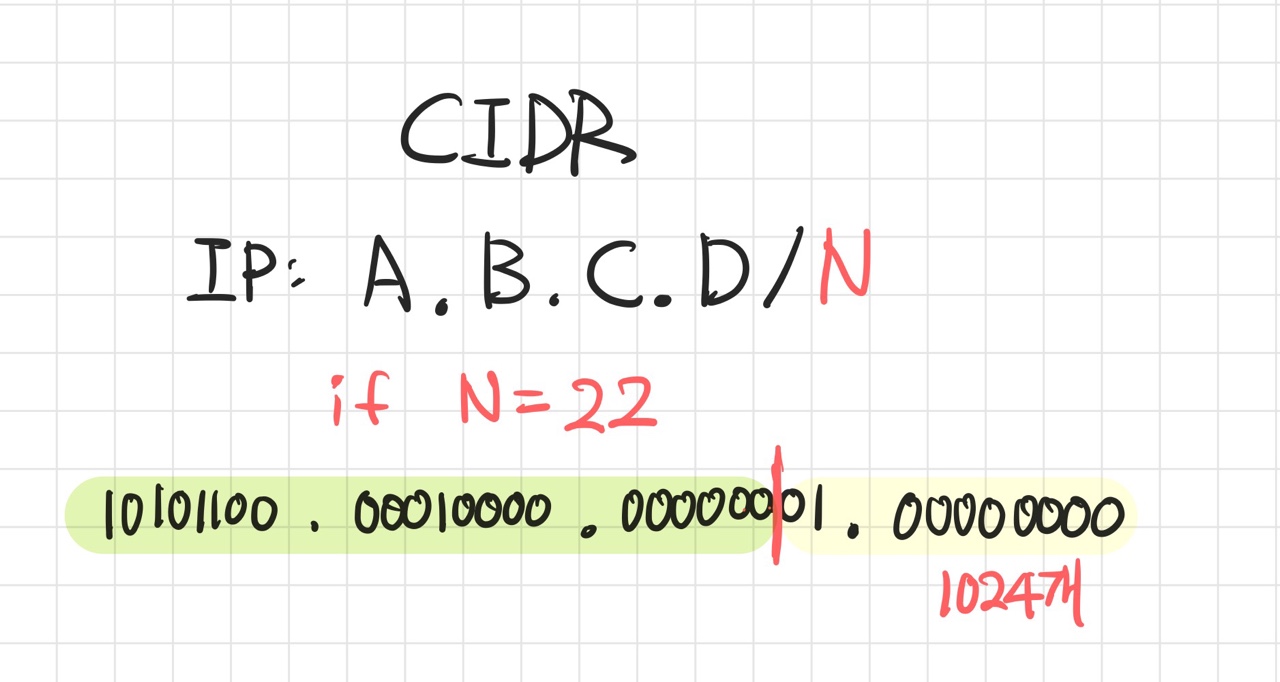 CIDR
IP: A.B.C.D/N
if N=22
10101100 . 00010000 . 00000001 . 00000000
1024개